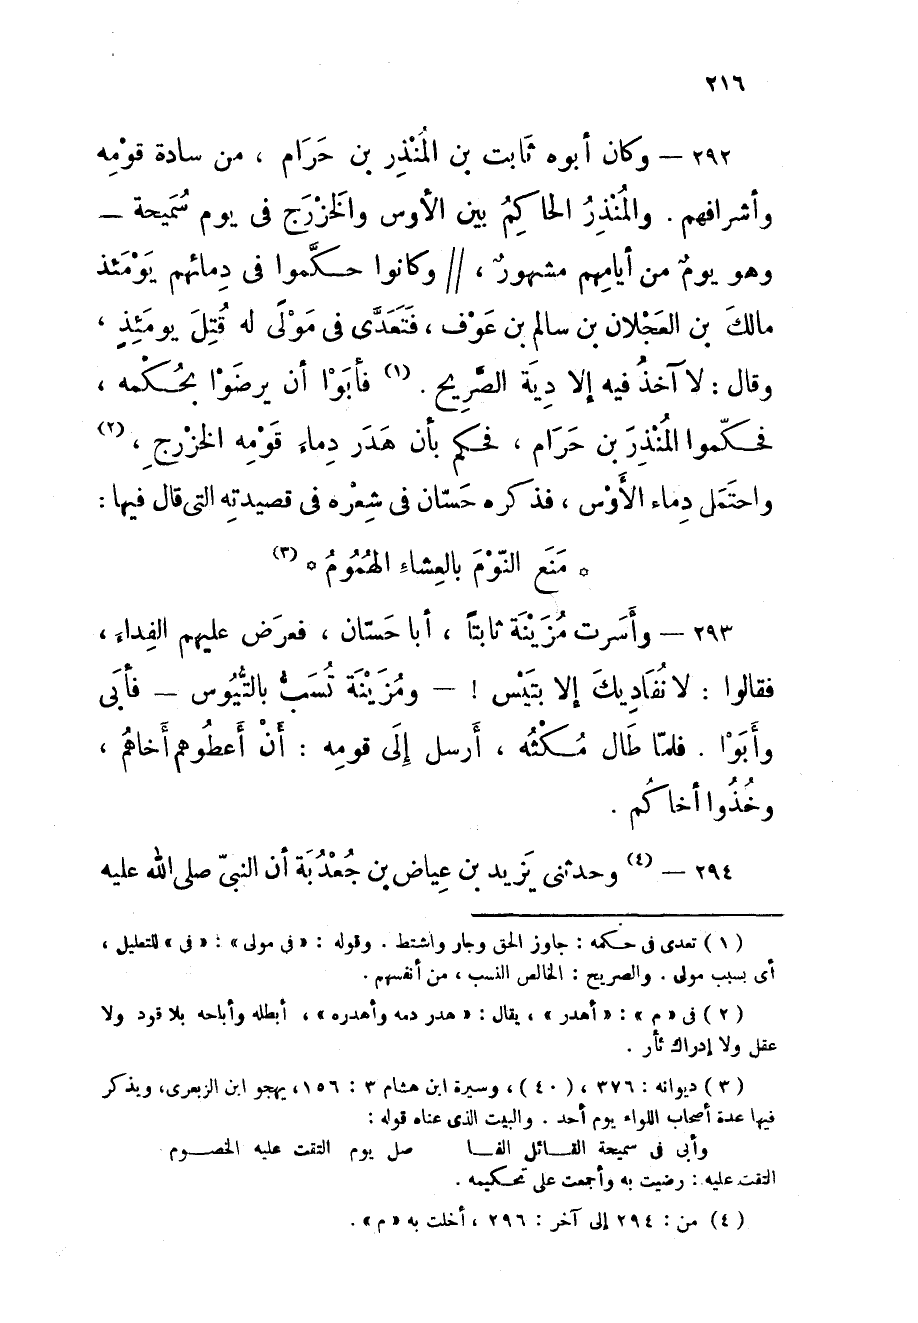 ٢١٦
٢٩٢ — وكان أبوه ثَابت بن المُنْذِر بن حَرَام ، من سادة قوْمِه
وأشرافهم . والمُنْذِرُ الحاكِمُ بين الأوس والخَزْرَج فى يوم سُمَيحة —
وهو يومٌ من أيامِهم مشهورٌ ، // وكانوا حكَّموا فى دِمائهم يَوْمَئذ
مالكَ بن العَجْلان بن سالم بن عَوْف ، فَتَعَدَّى فى مَوْلًى له قُتِلَ يومَئِذٍ ،
وقال : لا آخذُ فيه إلا دِيَة الصَّرِيحِ . (١) فأبَوْا أن يرضَوْا بحُكْمه ،
فحكّموا المُنْذِرَ بن حَرَام ، فحكم بأن هَدَر دِماءِ قَوْمِه الخزْرجِ ، (٢)
واحتَمَل دِماء الأَوْس ، فذكره حَسّان فى شِعْره فى قصيدته التى قال فيها :
* مَنَع النّوْمَ بالعِشاءِ الهُمُومُ * (٣)
٢٩٣ — وأَسَرت مُزَيْنَة ثابتاً ، أبا حَسّان ، فعرَض عليهم الفِداء ،
فقالوا : لا نُفَادِيكَ إلا بتَيْس ! — ومُزَيْنَة تُسَبُّ بالتُّيُوس — فأبَى
وأَبَوْا . فلمّا طَال مُكْثُه ، أَرسل إِلَى قومِه : أَنْ أَعطُوهم أَخاهُم ،
وخُذُوا أخاكُم .
٢٩٤ — (٤) وحدثنى يَزيد بن عِياض بن جُعْدُبَة أن النبىّ صلى الله عليه
( ١ ) تعدى فى حكمه : جاوز الحق وجار واشتط . وقوله : « فى مولى » : « فى » للتعليل ،
أى بسبب مولى . والصريح : الخالص النسب ، من أنفسهم .
( ٢ ) فى « م » : « أهدر » ، يقال : « هدر دمه وأهدره » ، أبطله وأباحه بلا قود ولا
عقل ولا إدراك ثأر .
( ٣ ) ديوانه : ٣٧٦ ، ( ٤٠ ) ، وسيرة ابن هشام ٣ : ١٥٦ ، يهجو ابن الزبعرى ، ويذكر
فيها عدة أصحاب اللواء يوم أحد . والبيت الذى عناه قوله :
وأبى فى سميحة القائل الفا صل يوم التقت عليه الخصوم
التقت عليه : رضيت به وأجمعت على تحكيمه .
( ٤ ) من : ٢٩٤ إلى آخر : ٢٩٦ ، أخلت به « م » .